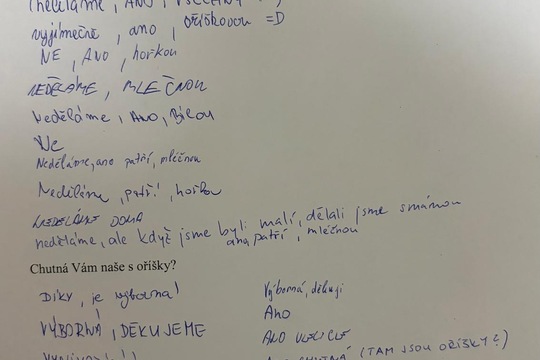 neděláme, ANO,
vyjímečně, ano, oříškovou =D
NE, ANO, hořkou
NEDĚLÁME, MLÉČNOU
Neděláme, Ano, Bílou
Ne
Neděláme, ano patří, mléčnou
Neděláme, patří, hořkou
NEDĚLÁME DOMA
neděláme, ale když jsme byli malí, dělali jsme srnánou
ano patří, mléčnou
Chutná Vám naše s oříšky?
DÍKY, je výborná!
Výborná, děkuji
Ano
VÝBORNÁ, DĚKUJEME
ANO VELICE
CHUTNÁ (TAM JSOU OŘÍŠKY?)